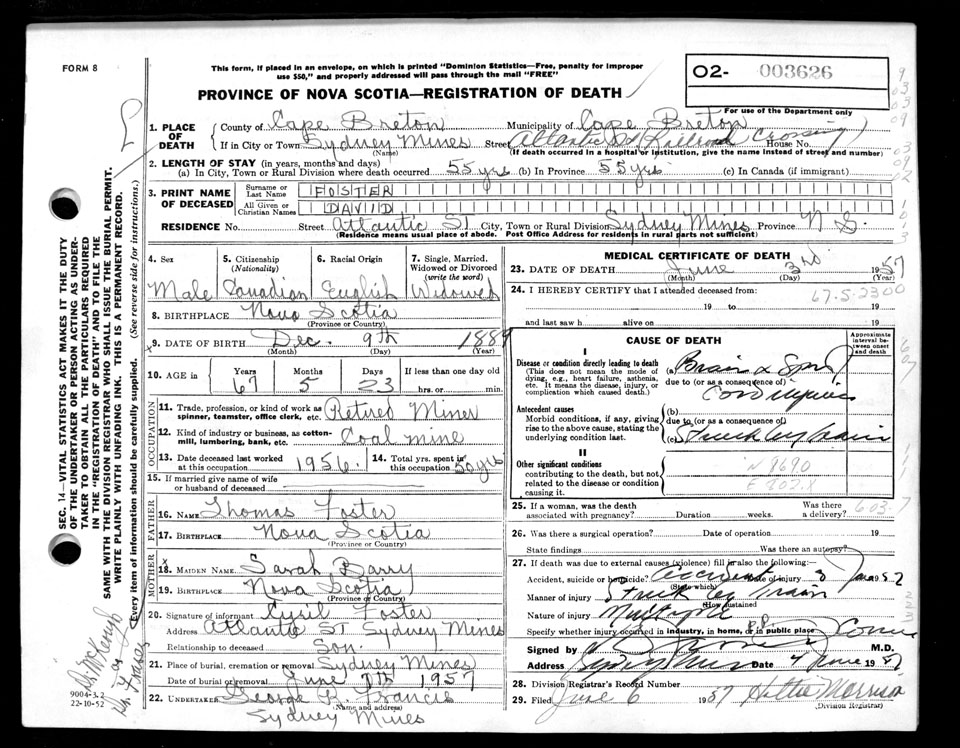 FORM 8
This form, if placed in an envelope, on which is printed "Dominion Statistics—Free, penalty for improper
use $50," and properly addressed will pass through the mail "FREE"
O2- 003626
For use of the Department only
PROVINCE OF NOVA SCOTIA—REGISTRATION OF DEATH
1. PLACE OF DEATH
County of Cape Breton Municipality of Cape Breton
If in City or Town Sydney Mines Street Atlantic St Crossing House No.
(Name) (If death occurred in a hospital or institution, give the name instead of street and number)
2. LENGTH OF STAY (in years, months and days)
(a) In City, Town or Rural Division where death occurred 55 yrs (b) In Province 55 yrs (c) In Canada (if immigrant)
3. PRINT NAME OF DECEASED
Surname or Last Name FOSTER
All Given or Christian Names DAVID
RESIDENCE No. Street Atlantic ST City, Town or Rural Division Sydney Mines Province N S.
(Residence means usual place of abode. Post Office Address for residents in rural parts not sufficient)
4. Sex Male
5. Citizenship (Nationality) Canadian
6. Racial Origin English
7. Single, Married, Widowed or Divorced (write the word) Widowed
8. BIRTHPLACE Nova Scotia
(Province or Country)
9. DATE OF BIRTH Dec. 9th 1889
(Month) (Day) (Year)
10. AGE in Years 67 Months 5 Days 23 If less than one day old hrs. or min.
OCCUPATION
11. Trade, profession, or kind of work as spinner, teamster, office clerk, etc. Retired Miner
12. Kind of industry or business, as cotton-mill, lumbering, bank, etc. Coal mine
13. Date deceased last worked at this occupation 1956.
14. Total yrs. spent in this occupation 50 yrs
15. If married give name of wife or husband of deceased
FATHER
16. NAME Thomas Foster
17. BIRTHPLACE Nova Scotia
(Province or Country)
MOTHER
18. MAIDEN NAME Sarah Barry
19. BIRTHPLACE Nova Scotia
(Province or Country)
20. Signature of informant Cyril Foster
Address Atlantic ST Sydney Mines
Relationship to deceased Son
21. Place of burial, cremation or removal Sydney Mines
Date of burial or removal June 7th 1957
22. UNDERTAKER George R. Francis
(Name and address)
Sydney Mines
MEDICAL CERTIFICATE OF DEATH
23. DATE OF DEATH June 3rd 1957
(Month) (Day) (Year)
24. I HEREBY CERTIFY that I attended deceased from:
67-5-2300
19 to 19
and last saw h alive on 19
CAUSE OF DEATH
Approximate interval between onset and death
I
Disease or condition directly leading to death
(This does not mean the mode of dying, e.g., heart failure, asthenia, etc. It means the disease, injury, or complication which caused death.)
(a) Brain & Spinal
due to (or as a consequence of)
Cord injuries
Antecedent causes
Morbid conditions, if any, giving rise to the above cause, stating the underlying condition last.
(b)
due to (or as a consequence of)
(c) Struck by train
II
Other significant conditions
contributing to the death, but not related to the disease or condition causing it.
N 8690
E 802.X
25. If a woman, was the death associated with pregnancy? Duration weeks. Was there a delivery?
603-7
26. Was there a surgical operation? Date of operation 19
State findings Was there an autopsy?
27. If death was due to external causes (violence) fill in also the following:
Accident, suicide or homicide? Accident Date of injury 3 June 1957
(State which)
Manner of injury Struck by train
(How sustained
Nature of injury Multiple
Specify whether injury occurred in industry, in home, or in public place
Signed by M.D.
Address Sydney Mines Date 4 June 1957
28. Division Registrar's Record Number
29. Filed June 6 1957 Hattie Morrison
(Division Registrar)
SEC. 14—VITAL STATISTICS ACT MAKES IT THE DUTY
OF THE UNDERTAKER OR PERSON ACTING AS UNDER-
TAKER TO OBTAIN ALL THE PARTICULARS REQUIRED
IN THE "REGISTRATION OF DEATH" AND TO FILE THE
SAME WITH THE DIVISION REGISTRAR WHO SHALL ISSUE THE BURIAL PERMIT.
WRITE PLAINLY WITH UNFADING INK. THIS IS A PERMANENT RECORD.
Every item of information should be carefully supplied. (See reverse side for instructions.)
9004-3.2
22-10-52